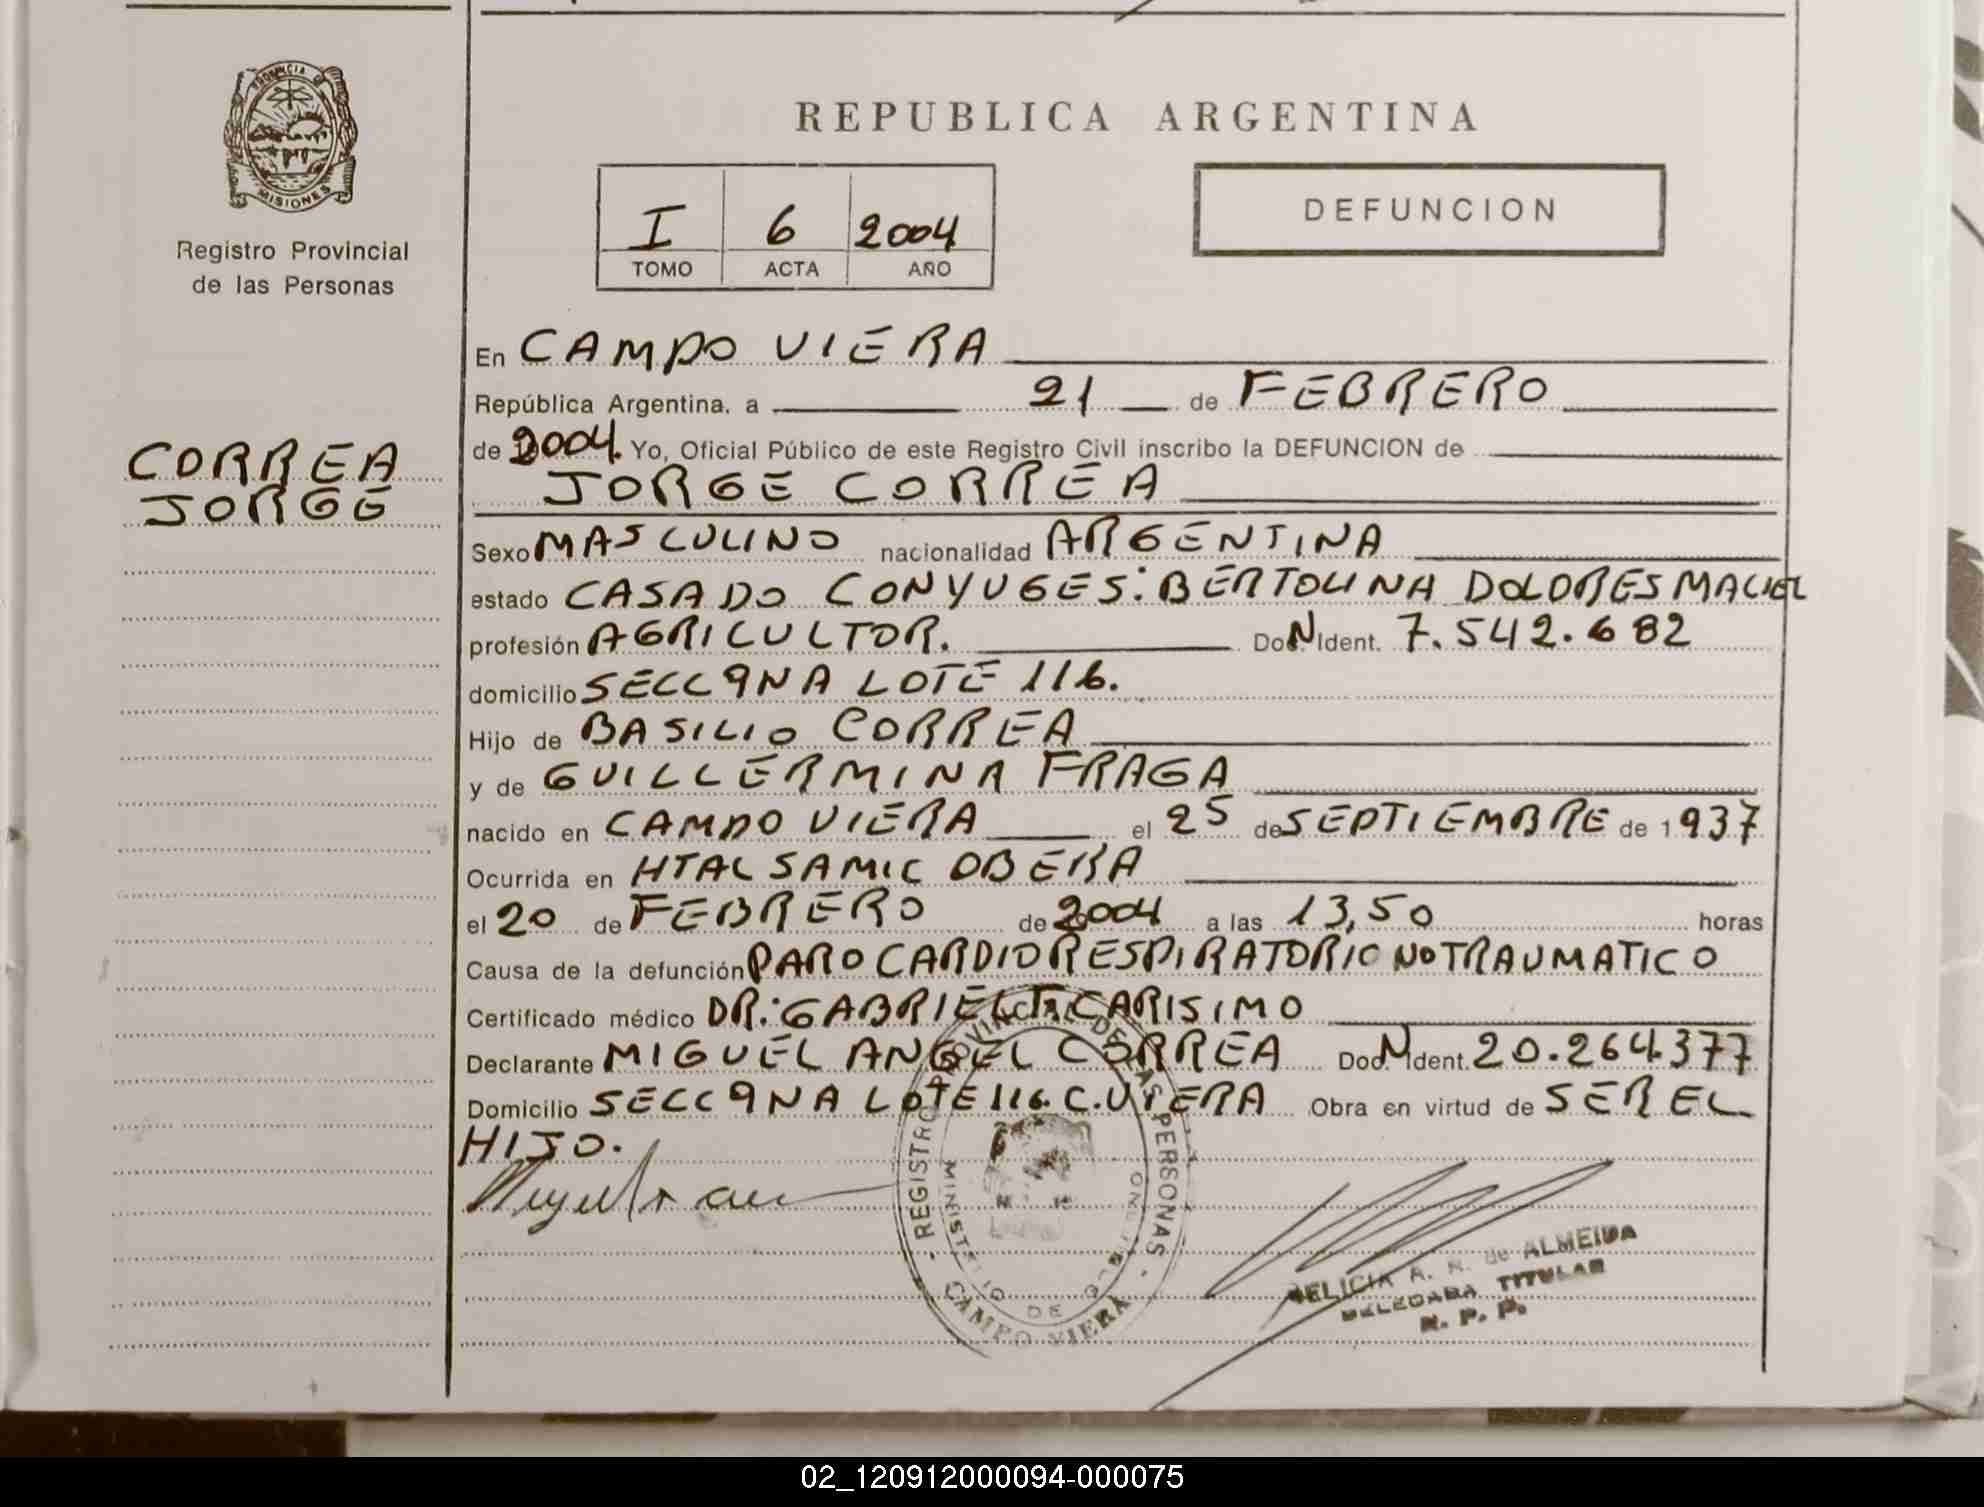 PROVINCIA DE
MISIONES
Registro Provincial
de las Personas
CORREA
JORGE
REPUBLICA ARGENTINA
I 6 2004
TOMO ACTA AÑO
DEFUNCION
En CAMPO VIERA
República Argentina, a 21 de FEBRERO
de 2004. Yo, Oficial Público de este Registro Civil inscribo la DEFUNCION de
JORGE CORREA
Sexo MASCULINO nacionalidad ARGENTINA
estado CASADO CONYUGES: BERTOLINA DOLORES MACIEL
profesión AGRICULTOR. Doc. N Ident. 7.542.682
domicilio SECC 9NA LOTE 116.
Hijo de BASILIO CORREA
y de GUILLERMINA FRAGA
nacido en CAMPO VIERA el 25 de SEPTIEMBRE de 1937
Ocurrida en HTAL SAMIC OBERA
el 20 de FEBRERO de 2004 a las 13,50 horas
Causa de la defunción PARO CARDIORESPIRATORIO NO TRAUMATICO
Certificado médico DR: GABRIEL CARISIMO
Declarante MIGUEL ANGEL CORREA Doc. N Ident. 20.264.377
Domicilio SECC 9NA LOTE 116. C. VIERA Obra en virtud de SER EL
HIJO.
REGISTRO PROVINCIAL DE LAS PERSONAS
MINISTERIO DE GOBIERNO
CAMPO VIERA
FELICIA A. R. de ALMEIDA
DELEGADA TITULAR
R. P. P.
02_120912000094-000075